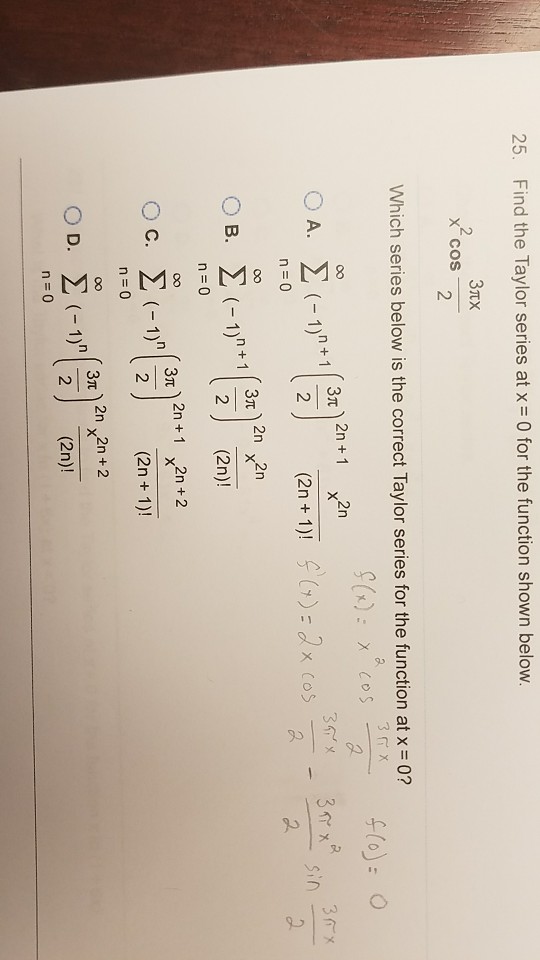 25. Find the Taylor series at x = 0 for the function shown below.
x² cos 3πx/2
Which series below is the correct Taylor series for the function at x = 0?
f(x) = x² cos 3πx/2 f(0) = 0
A. ∞ Σ n = 0 (− 1)ⁿ⁺¹ (3π/2)²ⁿ⁺¹ x²ⁿ/(2n + 1)!
f'(x) = 2x cos 3πx/2 − 3πx²/2 sin 3πx/2
B. ∞ Σ n = 0 (− 1)ⁿ⁺¹ (3π/2)²ⁿ x²ⁿ/(2n)!
C. ∞ Σ n = 0 (− 1)ⁿ (3π/2)²ⁿ⁺¹ x²ⁿ⁺²/(2n + 1)!
D. ∞ Σ n = 0 (− 1)ⁿ (3π/2)²ⁿ x²ⁿ⁺²/(2n)!